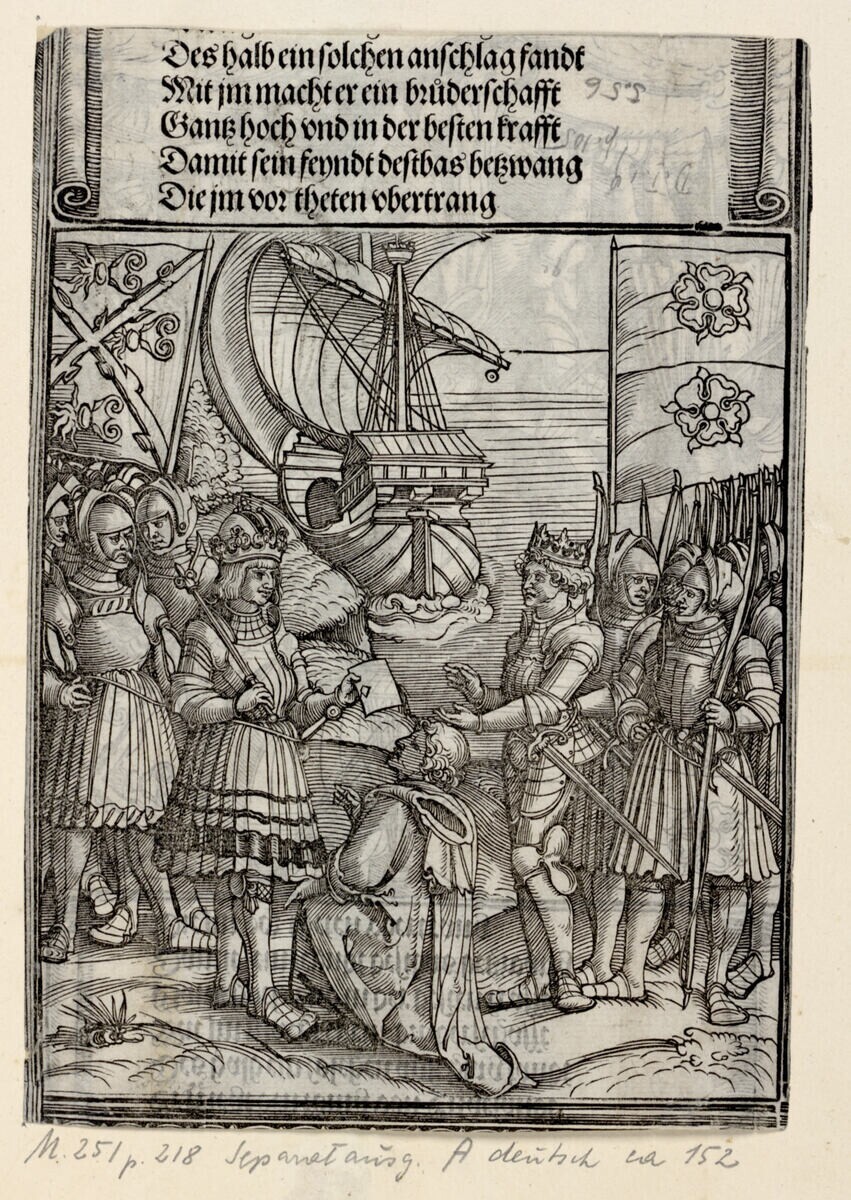 Des halb ein solchen anschlag fandt
Mit jm macht er ein brůderschafft
Gantz hoch vnd in der besten krafft
Damit sein feyndt destbas betzwang
Die jm vor theten vbertrang
M. 251 p. 218 Separatausg. A deutsch ca 152